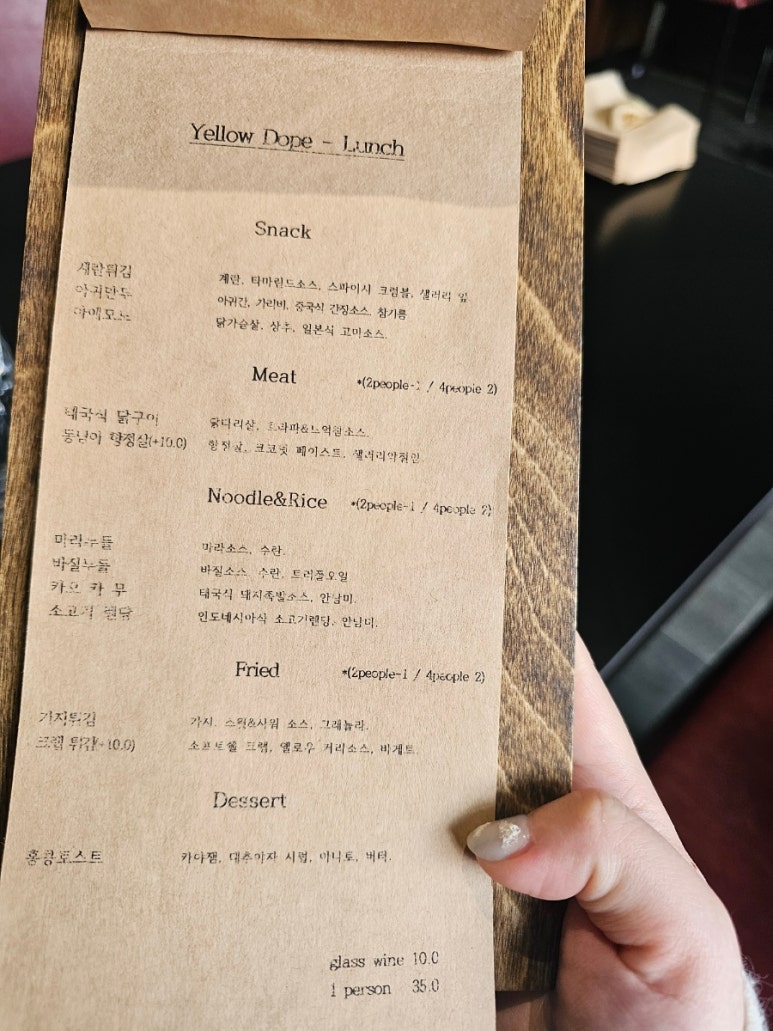 Yellow Dope - Lunch
Snack
새란튀김 계란, 타마린드소스, 스파이시 크럼블, 샐러리 잎
아귀만두 아귀간, 가리비, 중국식 간장소스, 참기름
닭가슴살, 상추, 일본식 고미소스.
Meat *(2people-1 / 4people 2)
태국식 닭구이 닭다리살,
동남아 항정살(+10.0) 항정살, 코코넛 페이스트, 샐러리악절임
Noodle&Rice *(2people-1 / 4people 2)
마라누들 마라소스, 수란.
바질누들 바질소스, 수란, 트러플오일
카오 카 무 태국식 돼지족발소스, 안남미.
소고기 렌당 인도네시아식 소고기렌당, 안남미.
Fried *(2people-1 / 4people 2)
가지튀김 가지, 스윗&사워 소스, 그래놀라.
크랩 튀김(+10.0) 소프트쉘 크랩, 옐로우 커리소스, 바게트.
Dessert
홍콩토스트 카야잼, 대추야자 시럽, 마니토, 버터.
glass wine 10.0
1 person 35.0